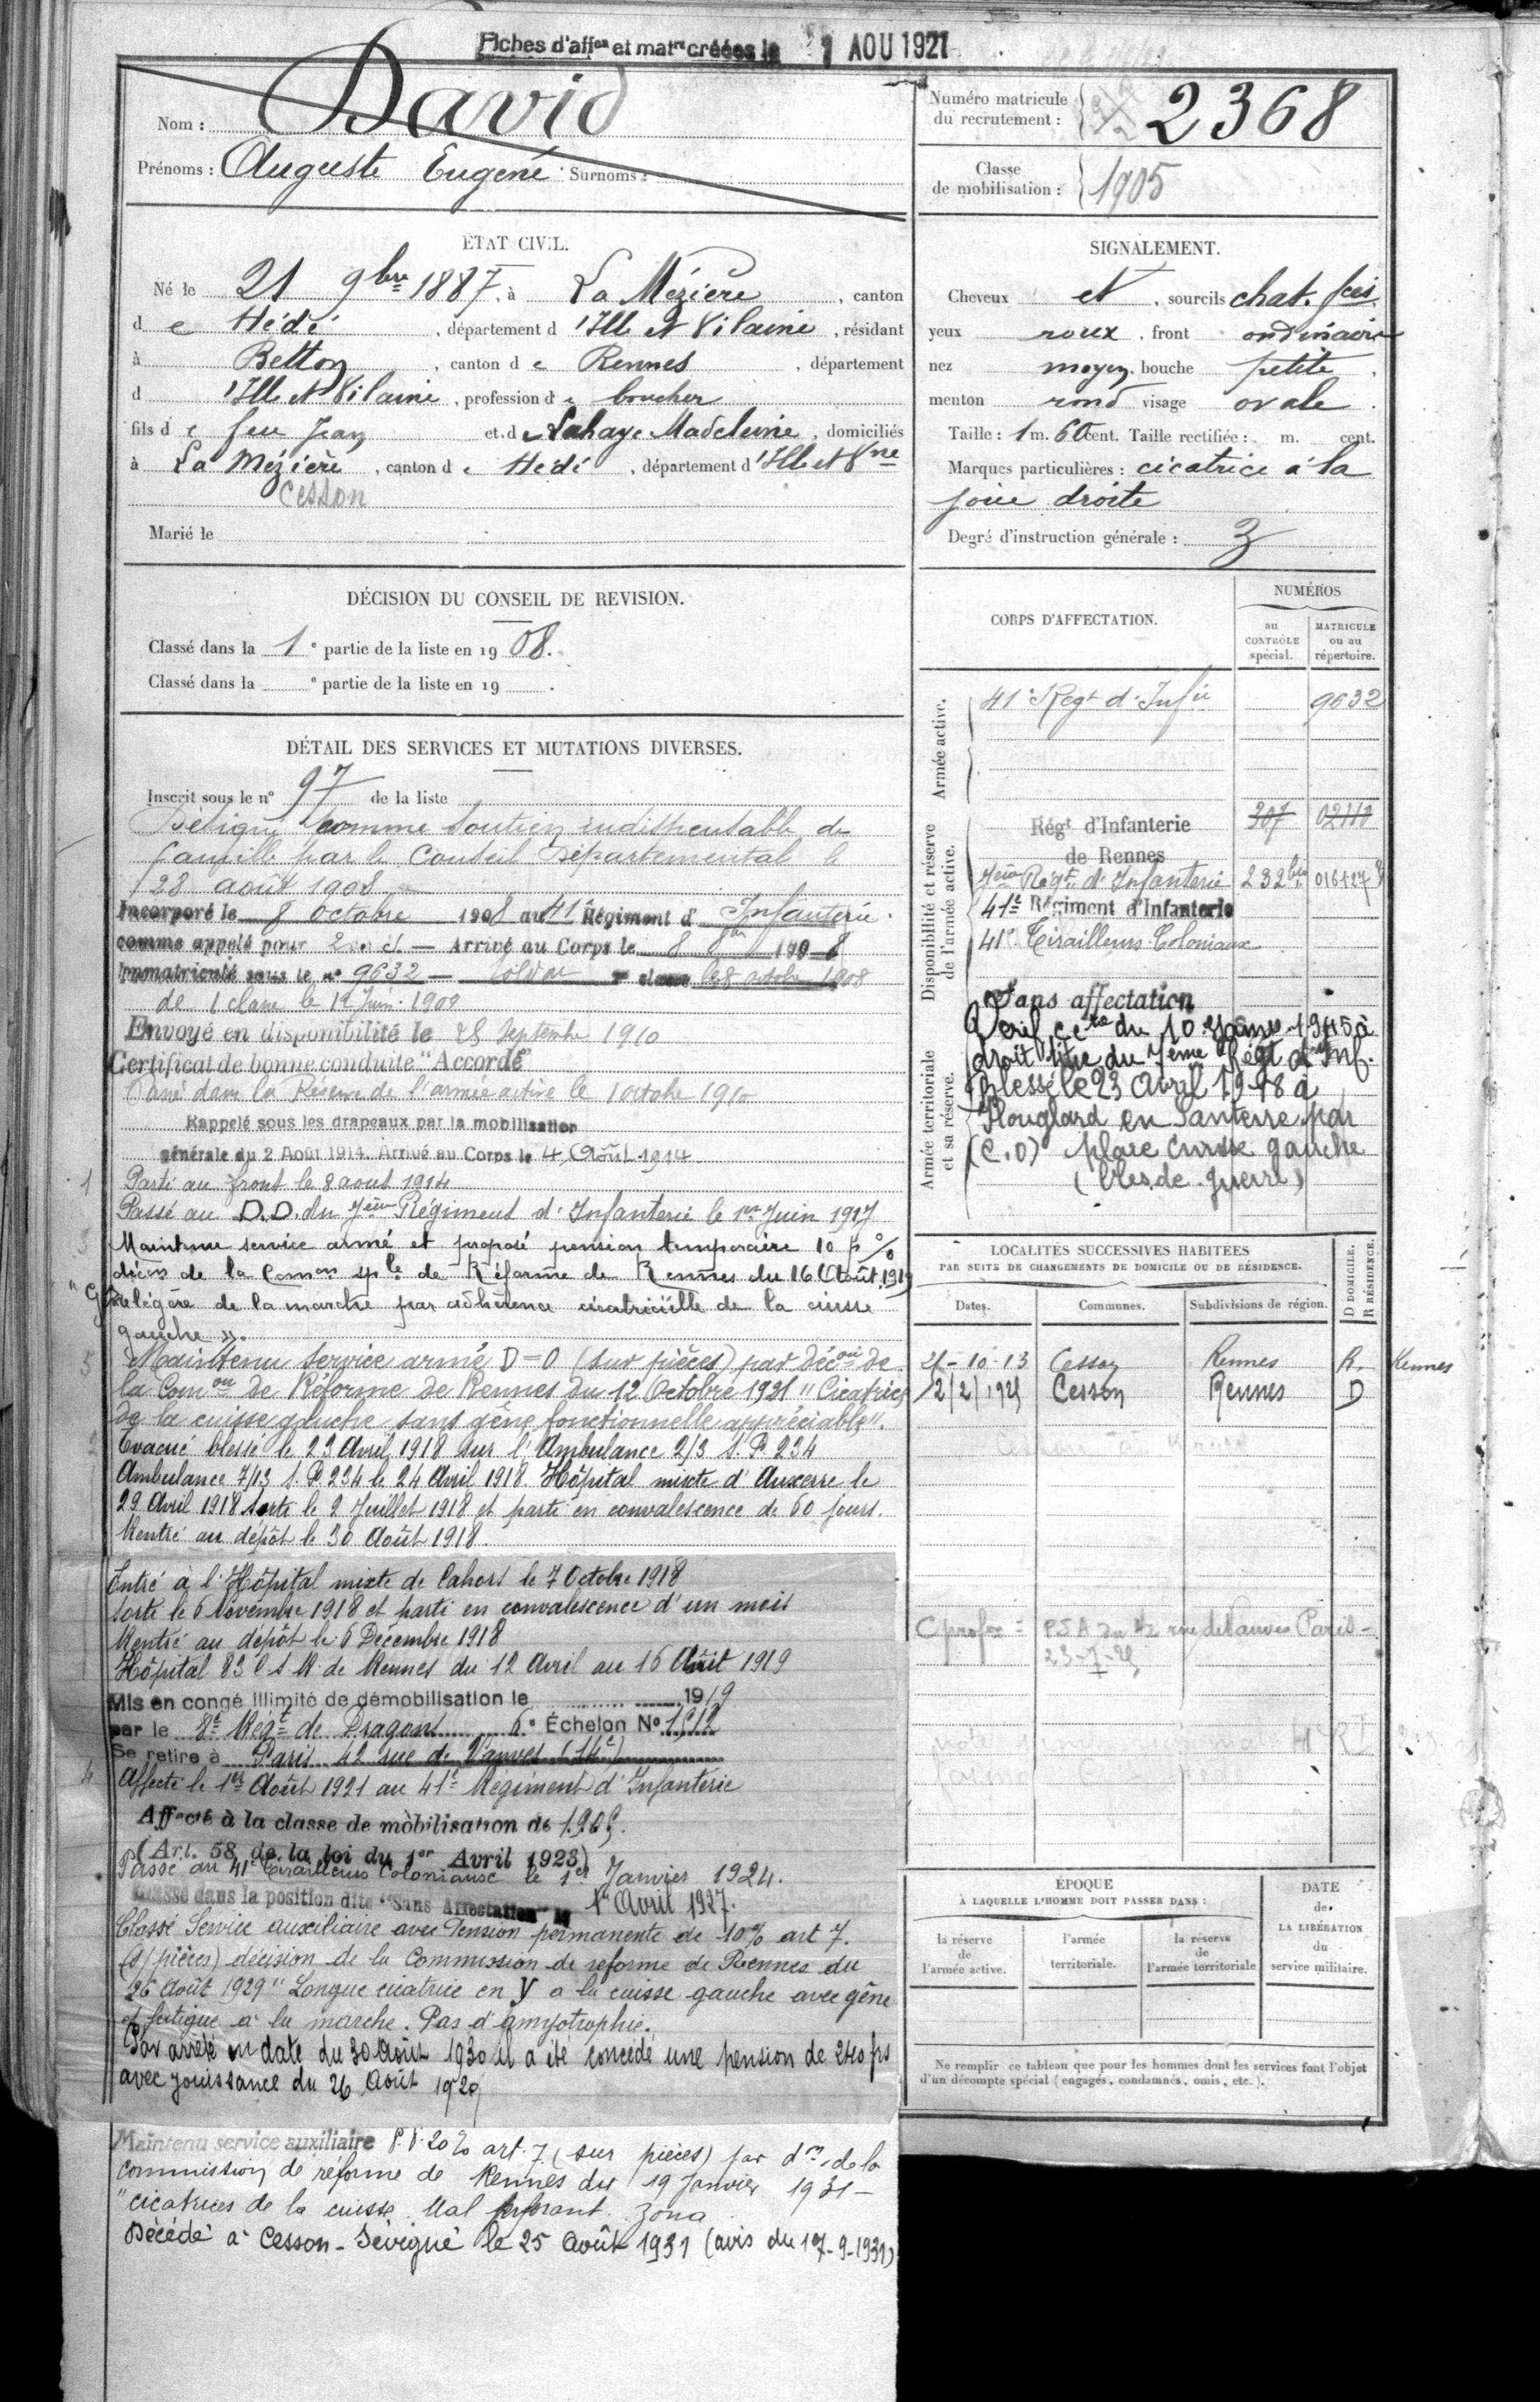 Fiches d'affon et matre créées le 1 AOU 1921
Nom : David
Prénoms : Auguste Eugène Surnoms :
Numéro matricule du recrutement : 2368
Classe de mobilisation : 1905
ÉTAT CIVIL.
Né le 21 9bre 1887, à La Mézière, canton
de Hédé, département d'Ille et Vilaine, résidant
à Betton, canton de Rennes, département
d'Ille et Vilaine, profession de boucher
fils de feu Jean et de Lahaye Madeleine, domiciliés
à La Mézière, canton de Hédé, département d'Ille et Vne
Cesson
Marié le
SIGNALEMENT.
Cheveux et, sourcils chat. fcés
yeux roux, front ordinaire
nez moyen, bouche petite,
menton rond visage ovale.
Taille : 1 m. 60 cent. Taille rectifiée : m. cent.
Marques particulières : cicatrice à la
joue droite
Degré d'instruction générale : 3
DÉCISION DU CONSEIL DE REVISION.
Classé dans la 1e partie de la liste en 1908.
Classé dans la e partie de la liste en 19 .
DÉTAIL DES SERVICES ET MUTATIONS DIVERSES.
Inscrit sous le n° 97 de la liste
Désigné comme soutien indispensable de
famille par le Conseil Départemental le
28 août 1908
Incorporé le 8 octobre 1908 au 41e Régiment d'Infanterie.
comme appelé pour 2 ans. — Arrivé au Corps le 8 8bre 1908
Immatriculé sous le n° 9632 — soldat classe le 8 octobre 1908
de 1 classe le 12 Juin 1909
Envoyé en disponibilité le 28 Septembre 1910
Certificat de bonne conduite "Accordé"
Passé dans la Réserve de l'armée active le 1 octobre 1910
Rappelé sous les drapeaux par la mobilisation
générale du 2 Août 1914. Arrivé au Corps le 4 Août 1914
1 Parti au front le 8 aout 1914
Passé au D.D. du 7ème Régiment d'Infanterie le 1er Juin 1917
3 Maintenu service armé et proposé pension temporaire 10 p %
décon de la Comon sple de Réforme de Rennes du 16 Août 1919
"Gêne légère de la marche par adhérence cicatricielle de la cuisse
gauche ».
5 Maintenu service armé D=0 (sur pièces) par décon de
la Comon de Réforme de Rennes du 12 Octobre 1921 "Cicatrice
de la cuisse gauche sans gêne fonctionnelle appréciable".
2 Evacué blessé le 23 Avril 1918 sur l'Ambulance 2/3 S.P. 234
Ambulance 7/13 S.P. 234 le 24 Avril 1918. Hôpital mixte d'Auxerre le
29 Avril 1918 sorti le 2 Juillet 1918 et parti en convalescence de 60 jours.
Rentré au dépôt le 30 Août 1918.
Entré à l'Hôpital mixte de Cahors le 7 Octobre 1918
sorti le 6 Novembre 1918 et parti en convalescence d'un mois
Rentré au dépôt le 6 Décembre 1918
Hôpital 83 C S R de Rennes du 12 Avril au 16 Août 1919
Mis en congé illimité de démobilisation le 1919
par le 8e Régt de Dragons 6e Échelon N° 1912
Se retire à Paris 42 rue de Vanves (14e)
4 Affecté le 1er Août 1921 au 41e Régiment d'Infanterie
Affecté à la classe de mobilisation de 1905.
(Art. 58 de la loi du 1er Avril 1923)
Passé au 41e Tirailleurs Coloniaux le 1er Janvier 1924.
Classé dans la position dite "Sans Affectation" le 1er Avril 1927.
Classé Service auxiliaire avec Pension permanente de 10% art 7.
(s/pièces) décision de la Commission de réforme de Rennes du
26 Août 1929 "Longue cicatrice en Y à la cuisse gauche avec gêne
et fatigue à la marche. Pas d'amyotrophie.
Par arrêté en date du 30 Août 1930 il a été concédé une pension de 240 frs
avec jouissance du 26 Août 1929
Maintenu service auxiliaire P.P. 20% art. 7 (sur pièces) par don de la
commission de réforme de Rennes du 19 Janvier 1931 –
"cicatrices de la cuisse. Mal perforant. Zona
Décédé à Cesson-Sévigné le 25 Août 1931 (avis du 17-9-1931)
CORPS D'AFFECTATION.
NUMÉROS
au CONTRÔLE spécial.
MATRICULE ou au répertoire.
Armée active.
41e Regt d'Infie 9632
Disponibilité et réserve de l'armée active.
Régt d'Infanterie 307 02111
de Rennes
7ème Régt d'Infanterie 232 bis
41e Régiment d'Infanterie
41e Tirailleurs Coloniaux
Armée territoriale et sa réserve.
Sans affectation
du 10 1945 à
droit titre du 7ème Régt d'Inf.
Blessé le 23 Avril 1918 à
Hougard en Santerre par
(E.O) plaie cuisse gauche
(bles. de guerre)
LOCALITÉS SUCCESSIVES HABITÉES
PAR SUITE DE CHANGEMENTS DE DOMICILE OU DE RÉSIDENCE.
Dates. Communes. Subdivisions de région. D DOMICILE. R RÉSIDENCE.
21-10-13 Cesson Rennes R. Rennes
12/2/1925 Cesson Rennes D
42 rue de Vanves Paris –
23-7-25
ÉPOQUE
À LAQUELLE L'HOMME DOIT PASSER DANS :
la réserve de l'armée active.
l'armée territoriale.
la réserve de l'armée territoriale
DATE de LA LIBÉRATION du service militaire.
Ne remplir ce tableau que pour les hommes dont les services font l'objet
d'un décompte spécial (engagés, condamnés, omis, etc.).